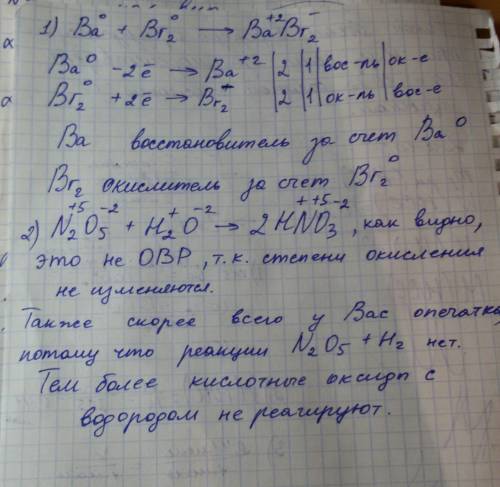 1) Ba⁰ + Br₂⁰ → Ba⁺²Br₂⁻
Ba⁰ -2ē → Ba⁺² | 2 | 1 | вос-ль | ок-е
Br₂⁰ +2ē → Br₂⁻ | 2 | 1 | ок-ль | вос-е
Ba восстановитель за счет Ba⁰
Br₂ окислитель за счет Br₂⁰
2) N₂⁺⁵O₅⁻² + H₂⁺O⁻² → 2H⁺N⁺⁵O₃⁻², как видно,
это не ОВР, т.к. степени окисления
не изменяются.
Также скорее всего у Вас опечатка
потому что реакции N₂O₅ + H₂ нет.
Тем более кислотные оксиды с
водородом не реагируют.